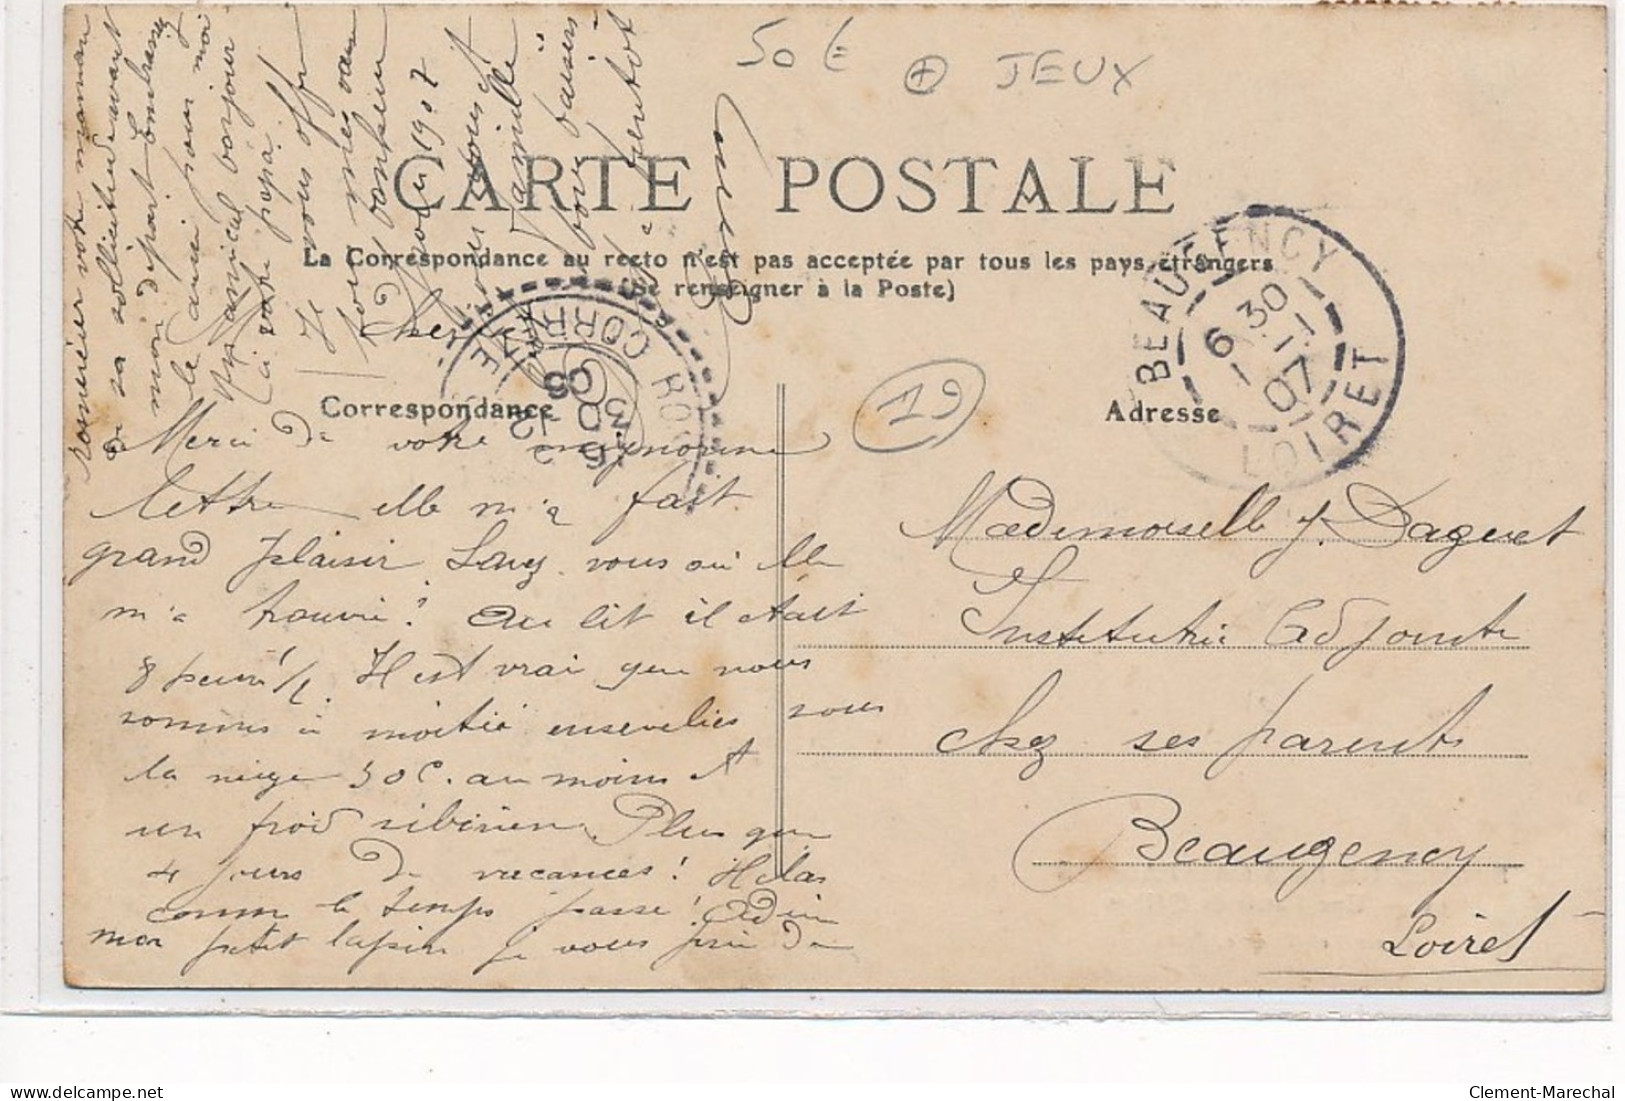 50 € + JEUX
CARTE POSTALE
La Correspondance au recto n'est pas acceptée par tous les pays étrangers
(Se renseigner à la Poste)
Correspondance
Adresse
19
BEAUGENCY
6 30
1 - 1
07
LOIRET
CORR
Merci de votre mignonne
lettre elle m'a fait
grand plaisir Savez vous où elle
m'a trouvé? Au lit il était
8 heures 1/2. Il est vrai que nous
sommes à moitié ensevelies sous
la neige 50 c. au moins et
un froid sibérien. Plus que
4 jours de vacances! Hélas
comme le temps passe! Adieu
mon petit lapin je vous prie de
remercier votre maman
de sa sollicitude avant
mon départ Embrassez
la aussi pour moi
Mon amical bonjour
à votre papa.
Je vous offre
tous mes vœux
de bonheur
pour 1907
chez vous et
famille
bons baisers
à bientôt
Mademoiselle J. Daguet
Institutrice Adjointe
chez ses parents
Beaugency
Loiret
Clement-Marechal